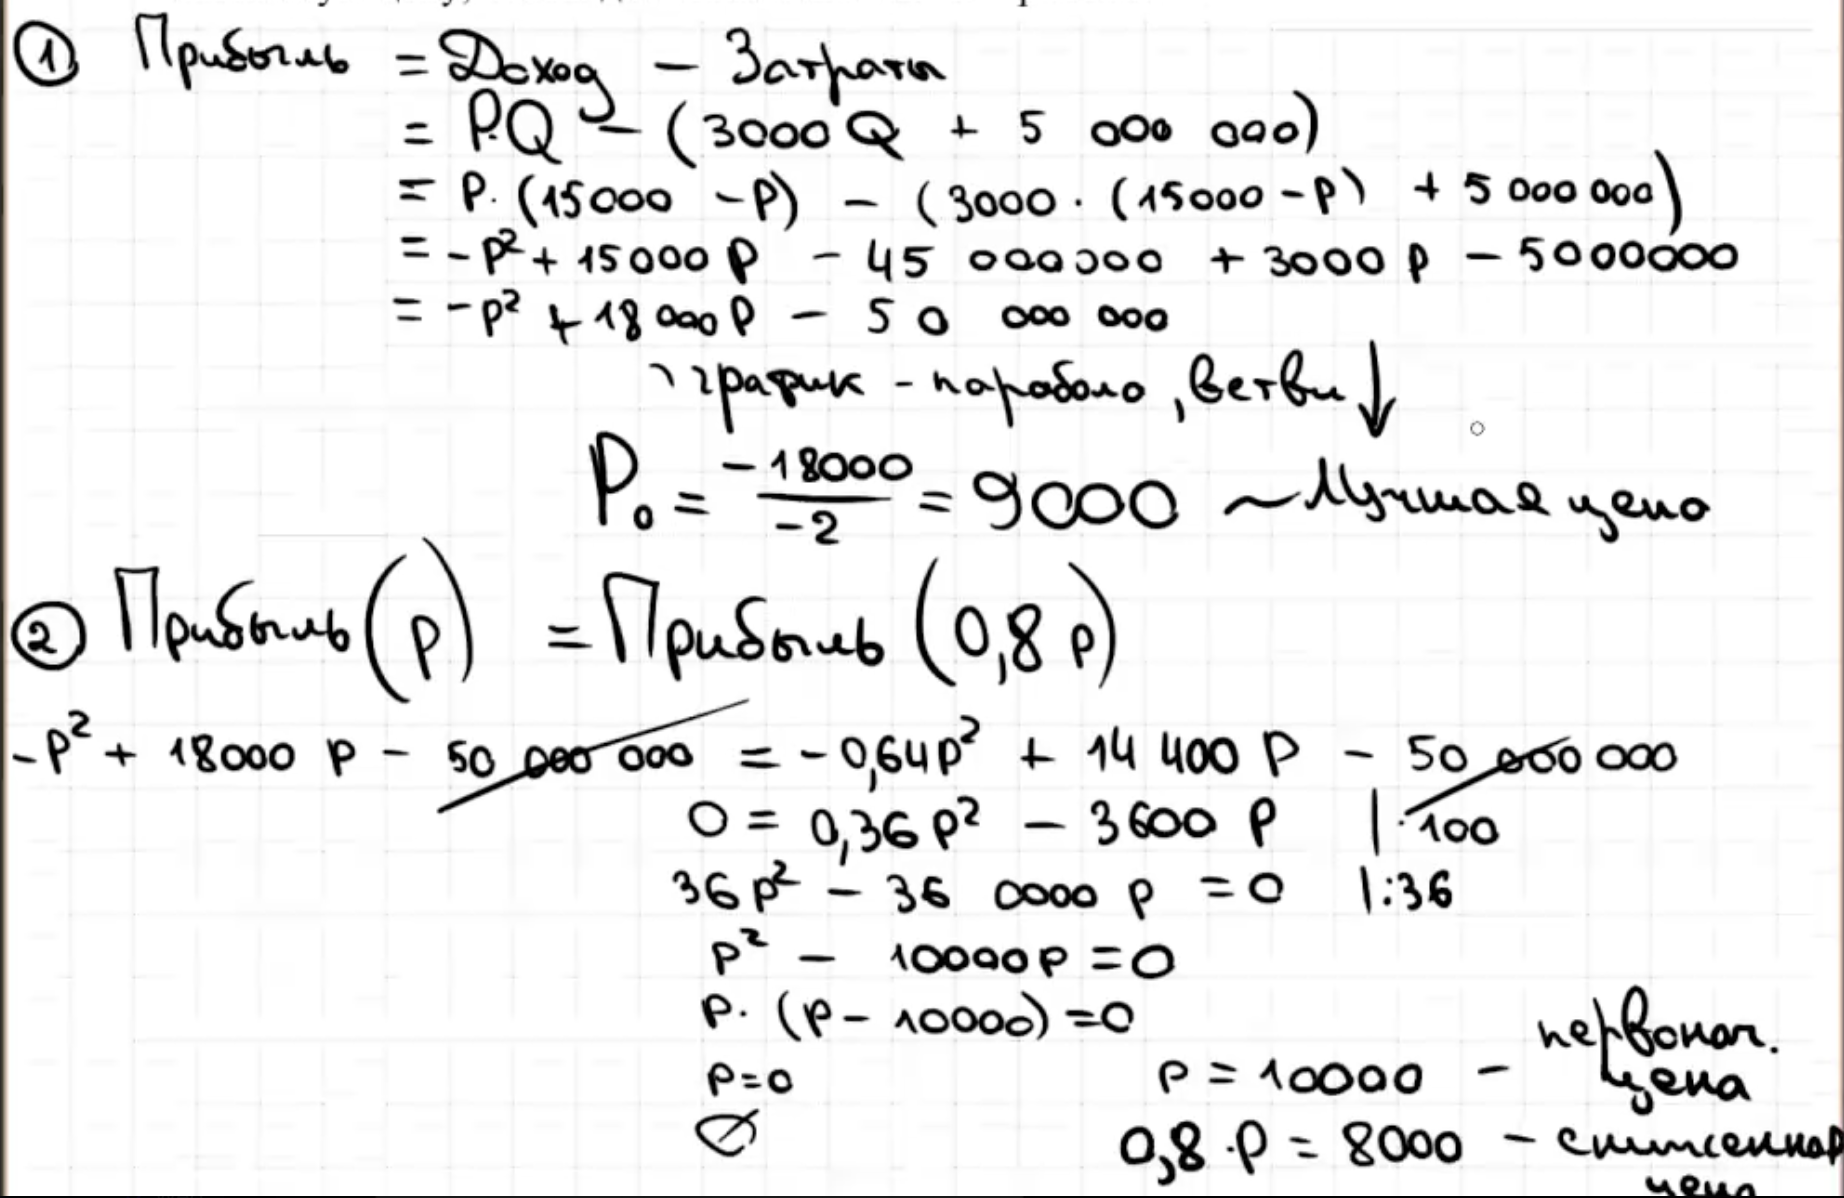 ① Прибыль = Доход – Затраты
= P·Q – (3000Q + 5 000 000)
= P·(15000 – P) – (3000·(15000 – P) + 5 000 000)
= -P² + 15000P – 45 000000 + 3000P – 5000000
= -P² + 18000P – 50 000 000
график – парабола, ветви ↓
P₀ = -18000/-2 = 9000 ~ Лучшая цена
② Прибыль(P) = Прибыль(0,8P)
-P² + 18000P – 50 000 000 = -0,64P² + 14 400P – 50 000 000
0 = 0,36P² – 3600P |·100
36P² – 36 0000P = 0 |:36
P² – 10000P = 0
P·(P – 10000) = 0
P=0 P = 10000 – первонач. цена
∅ 0,8·P = 8000 – сниженная
цена